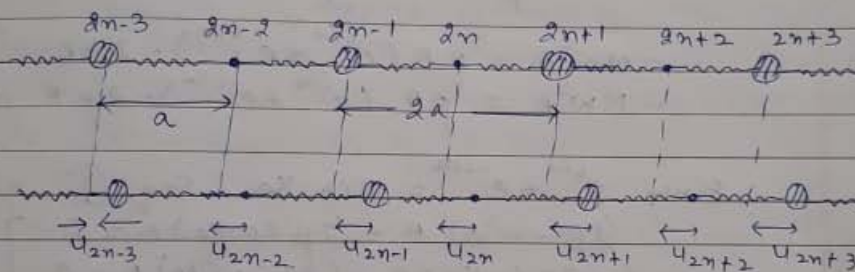 2n-3 2n-2 2n-1 2n 2n+1 2n+2 2n+3
a 2a
u2n-3 u2n-2 u2n-1 u2n u2n+1 u2n+2 u2n+3